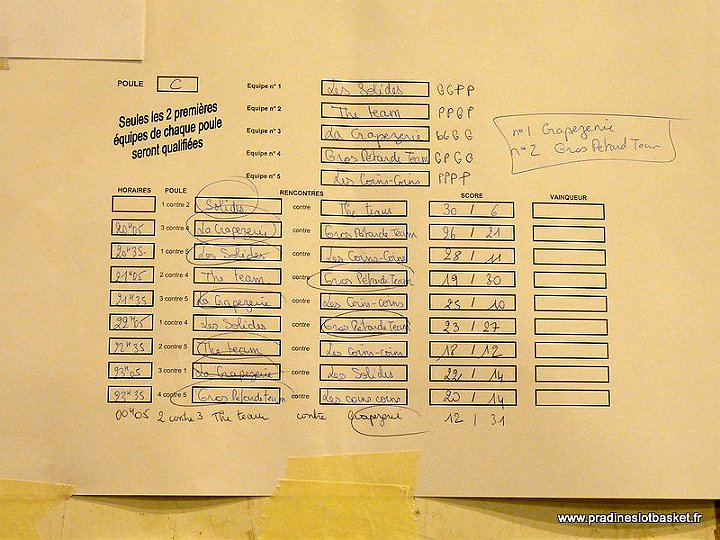 POULE C Equipe n° 1 Les Solides GGPP
Equipe n° 2 The team PPGP
Seules les 2 premières
équipes de chaque poule
seront qualifiées
Equipe n° 3 La Grapezerie GGGG
Equipe n° 4 Gros Pétard Team GPGG
Equipe n° 5 Les Coins-Coins PPPP
n°1 Grapezerie
n°2 Gros Pétard Team
HORAIRES POULE RENCONTRES SCORE VAINQUEUR
1 contre 2 Solides contre The team 30 / 6
20H05 3 contre 4 La Grapezerie contre Gros Pétard Team 26 / 21
20H35 1 contre 5 Les Solides contre Les Coins-Coins 28 / 11
21H05 2 contre 4 The team contre Gros Pétard Team 19 / 30
21H35 3 contre 5 La Grapezerie contre Les Coins-coins 25 / 10
22H05 1 contre 4 Les Solides contre Gros Pétard Team 23 / 27
22H35 2 contre 5 The team contre Les Coins-coins 18 / 12
23H05 3 contre 1 La Grapezerie contre Les Solides 22 / 14
23H35 4 contre 5 Gros Pétard Team contre Les coins coins 20 / 14
00H05 2 contre 3 The team contre Grapezerie 12 / 31
www.pradineslotbasket.fr